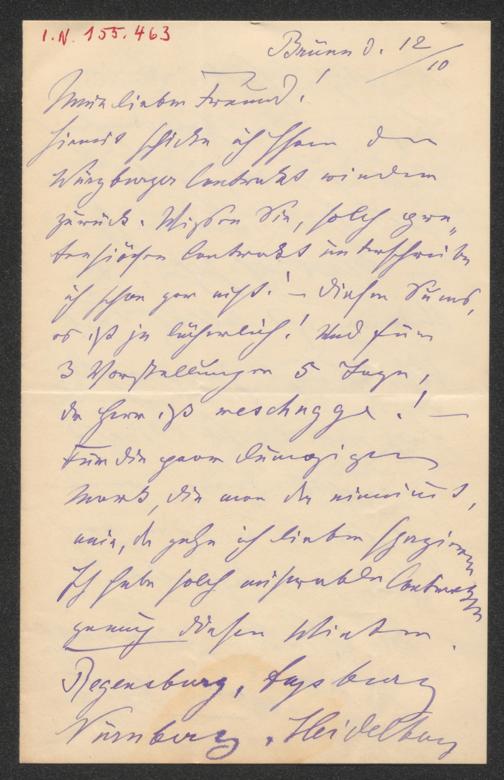 I.N. 155.463
Brünn d. 12/10
Mein lieber Freund!
Hiermit schicke ich Ihnen den
Würzburger Contrakt wiederum
zurück. Wissen Sie, solch
Contrakt unterschreibe
ich schon gar nicht! – Diesen Sums,
es ist ja lächerlich! Und für
3 Vorstellungen 5 Tage,
der Herr ist meschugge! –
Für die paar lumpigen
Mark, die man da einnimmt,
nein, da gehe ich lieber spazieren
Ich habe solch miserabler Contrakte
genug diesen Winter.
Regensburg, Augsburg
Nürnberg, Heidelberg